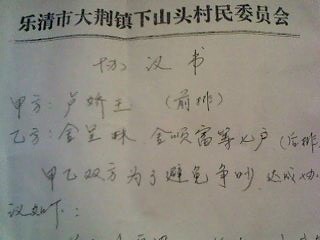 乐清市大荆镇下山头村民委员会
协议书
甲方：卢娇玉（前排）
乙方：金呈 金顺富等七户（后排
甲乙双方为了避免争吵，达成协
议如下：